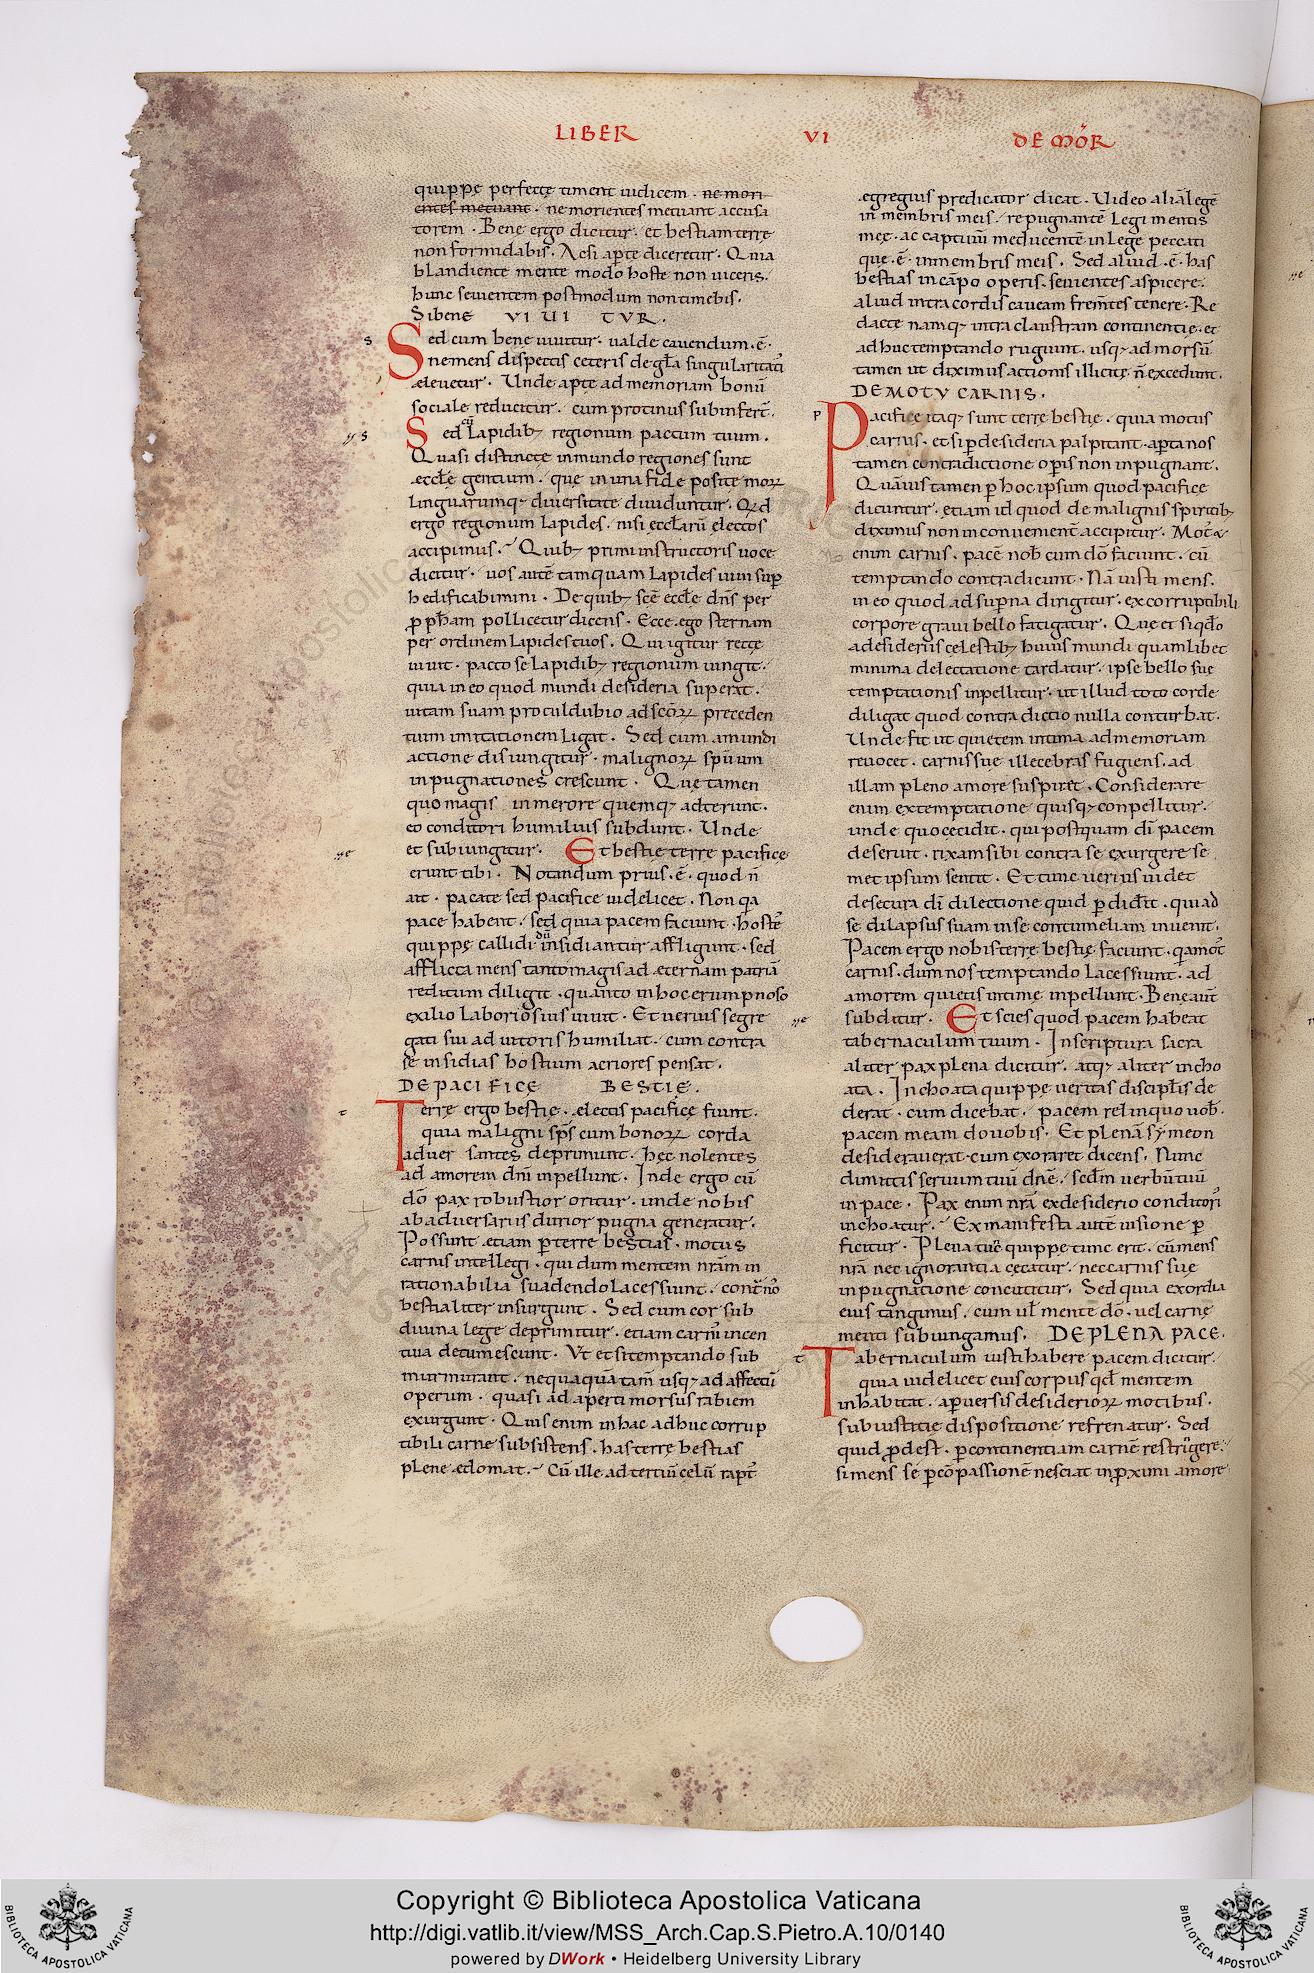 LIBER VI DE MOR̃
quippę perfectę timent iudicem · ne mori
entes metuant · ne morientes metuant accusa
torem · Bene ergo dicitur · et bestiam terrę
non formidabis · Acsi ap̲te diceretur · Quia
blandiente mente modo hoste non uiceris ·
hunc seuientem postmodum non timebis ·
Si bene VIUI TVR ·
s Sed cum bene uiuitur · ualde cauendum · ē ·
ne mens dispectis ceteris de gl̄a singularitati
eleuetur · Unde apte ad memoriam bonū
sociale reducitur · cum protinus subinfert̄ ·
s Sed cū lapidib; regionum pactum tuum ·
Quasi distinctę in mundo regiones sunt
eccl̄e gentium · quę in una fide posite moꝝ
linguarumq; diuersitate diuiduntur · Qd
ergo regionum lapides · nisi eccl̄arū electos
accipimus · Quib; primi instructoris uoce
dicitur · uos autē tamquam lapides uiui sup̲
hedificabimini · De quib; scē eccl̄e dn̄s per
ꝓ ph̄am pollicetur dicens · Ecce ego sternam
per ordinem lapides tuos · Qui igitur rectę
uiuit · pacto se lapidib; regionum iungit ·
quia in eo quod mundi desideria superat ·
uitam suam proculdubio ad scōꝝ preceden
tium imitationem ligat · Sed cum a mundi
actione disiungitur · malignoꝝ spūum
inpugnationes crescunt · Quę tamen
quo magis in merore quemq; adterunt ·
eo conditori humilius subdunt · Unde
et subiungitur · Et bestię terre pacifice
erunt tibi · Notandum prius · ē · quod n̄
ait · pacate sed pacifice uidelicet · Non qa
pace habent · sed quia pacem faciunt · hostes̄
quippę callidi dū insidiantur affligunt · sed
afflicta mens tanto magis ad eternam patriā
reditum diligit · quanto in hoc erumpnoso
exilio laboriosius uiuit · Et uerius segre
gati sui aduitoris humiliat · cum contra
se insidias hostium acriores pensat ·
DE PACIFICĘ BESTIĘ ·
t Terrę ergo bestię · electis pacificę fiunt ·
quia maligni sp̄s cum bonoꝝ corda
aduer santes deprimunt · hęc nolentes
ad amorem dn̄i inpellunt · Inde ergo cū
dō pax robustior oritur · unde nobis
ab aduersariis durior pugna generatur ·
Possunt etiam p̲ terre bestias · motus
carnis intellegi · qui dum mentem nr̄am in
rationabilia suadendo lacessiunt · contr̄ nos̄
bestialiter insurgunt · Sed cum cor sub
diuina lege deprimitur · etiam carnis̄ incen
tiua detumescunt · Vt etsi temptando sub
murmurant · nequaquā tam̄ usq; ad affectū
operum · quasi ad aperti morsus rabiem
exurgunt · Quis enim in hac adhuc corrup
tibili carne subsistens · has terrę bestias
plene edomat · Cū ille ad tertiū celū rapt̄
egregius predicator dicat · Uideo aliā lege
in membris meis · repugnantē legi mentis
męę · ac captiuū me ducentē in lege peccati
que · ē · in membris meis · Sed aliud · ē · has
bestias in cāpo operis · seuientes aspicere ·
aliud intra cordis caueam frem̄tes tenere · Re
dacte namq; intra claustram continentię · et
adhuc temptando rugiunt · usq; ad morsū
tamen ut diximus actionis illicitę n̄ excedunt ·
DE MOTV CARNIS ·
p Pacificę itaq; sunt terrę bestię · quia motus
carnis · etsi p̲ desideria palpitant · ap̲ta nos
tamen contradictione op̲is non inpugnant ·
Quāuis tamen p̲ hoc ipsum quod pacifice
dicuntur · etiam id quod de malignis spiritib;
diximus non inconuenient̄ accipitur · Mot̄
enim carnis · pacē nob̄ cum dō faciunt · cū
temptando contradicunt · Nā iusti mens ·
in eo quod ad sup̲na dirigitur · ex corruptibili
corpore graui bello fatigatur · Quę et siqdo
a desideriis celestib; huius mundi quamlibet
minima delectatione tardatur · ipse bello sue
temptationis inpellitur · ut illud toto corde
diligat quod contradictio nulla conturbat ·
Unde fit ut quietem intima ad memoriam
reuocet · carnis suę illecebras fugiens · ad
illam pleno amore suspiret · Considerare
enim ex temptatione quisq; conpellitur ·
unde quo cecidit · qui postquam dī pacem
deseruit · rixam sibi contra se exurgere se
met ipsum sentit · Et tunc uerius uidet
desecura dī dilectione quid p̲didit · qui ad
se dilapsus suam in se contumeliam inuenit ·
Pacem ergo nobis terrę bestię faciunt · qa mot̄
carnis · dum nos temptando lacessiunt · ad
amorem quietis intimę inpellunt · Bene aut̄
subditur · Et scies quod pacem habeat
tabernaculum tuum · In scriptura sacra
aliter pax plena dicitur · atq; aliter incho
ata · Inchoata quippę ueritas discipl̄is de
derat · cum dicebat · pacem relinquo uob̄ ·
pacem meam do uobis · Et plenā symeon
desiderauerat · cum exoraret dicens · Nunc
dimittis seruum tuū dn̄e · secd̄m uerbū tuū
in pace · Pax enim nr̄a ex desiderio conditoris̄
inchoatur · Ex manifesta autē uisione p̲
ficitur · Plena quippe tunc erit · cū mens
nr̄a nec ignorantia cecatur · nec carnis suę
inpugnatione concutitur · Sed quia exordia
eius tangimus · cum ul̄ mente dō · uel carnę
menti subiungamus · DE PLENA PACE ·
t Tabernaculum iusti habere pacem dicitur ·
quia uidelicet eius corpus qd̄ mentem
inhabitat · a p̲uersis desiderioꝝ motibus ·
sub iustitię dispositione refrenatur · Sed
quid ꝓdest · p̲ continentiam carnē restringere ·
si mens se p̲ cōpassionē nesciat in ꝓximi amore
Copyright © Biblioteca Apostolica Vaticana
http://digi.vatlib.it/view/MSS_Arch.Cap.S.Pietro.A.10/0140
powered by DWork • Heidelberg University Library
BIBLIOTECA APOSTOLICA VATICANA
BIBLIOTECA APOSTOLICA VATICANA